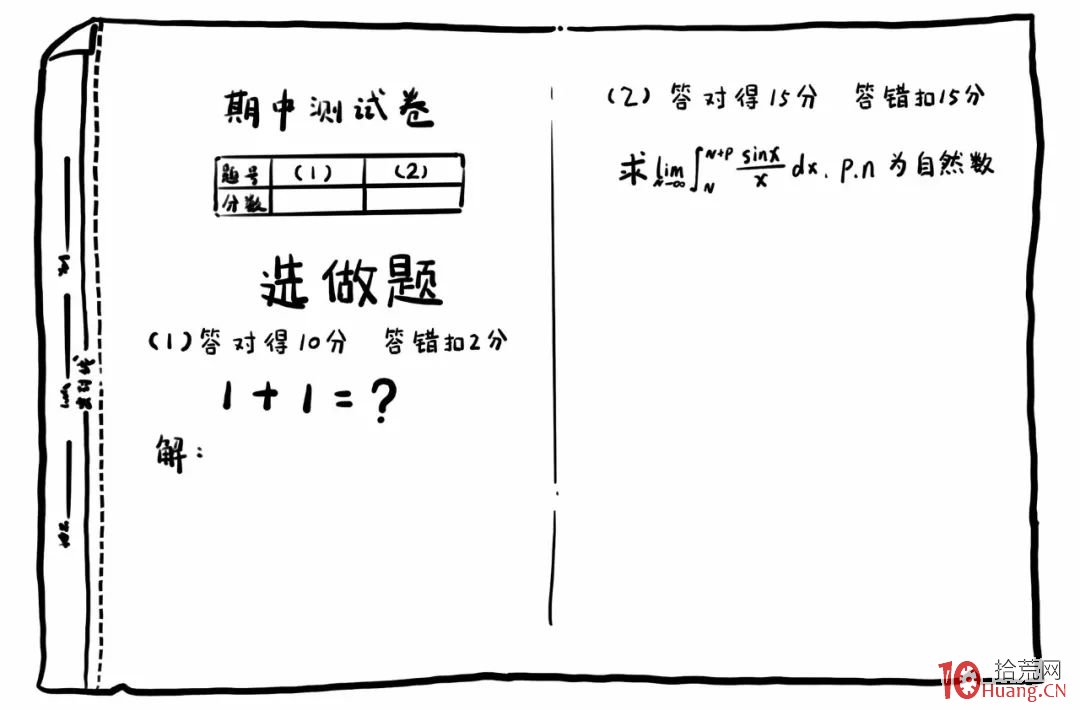 期中测试卷
题号 (1) (2)
分数
选做题
(1)答对得10分 答错扣2分
1+1=?
解:
(2)答对得15分 答错扣15分
求 lim N→∞ ∫ N N+P sinx/x dx. P.n 为自然数
拾荒网
10Huang.CN